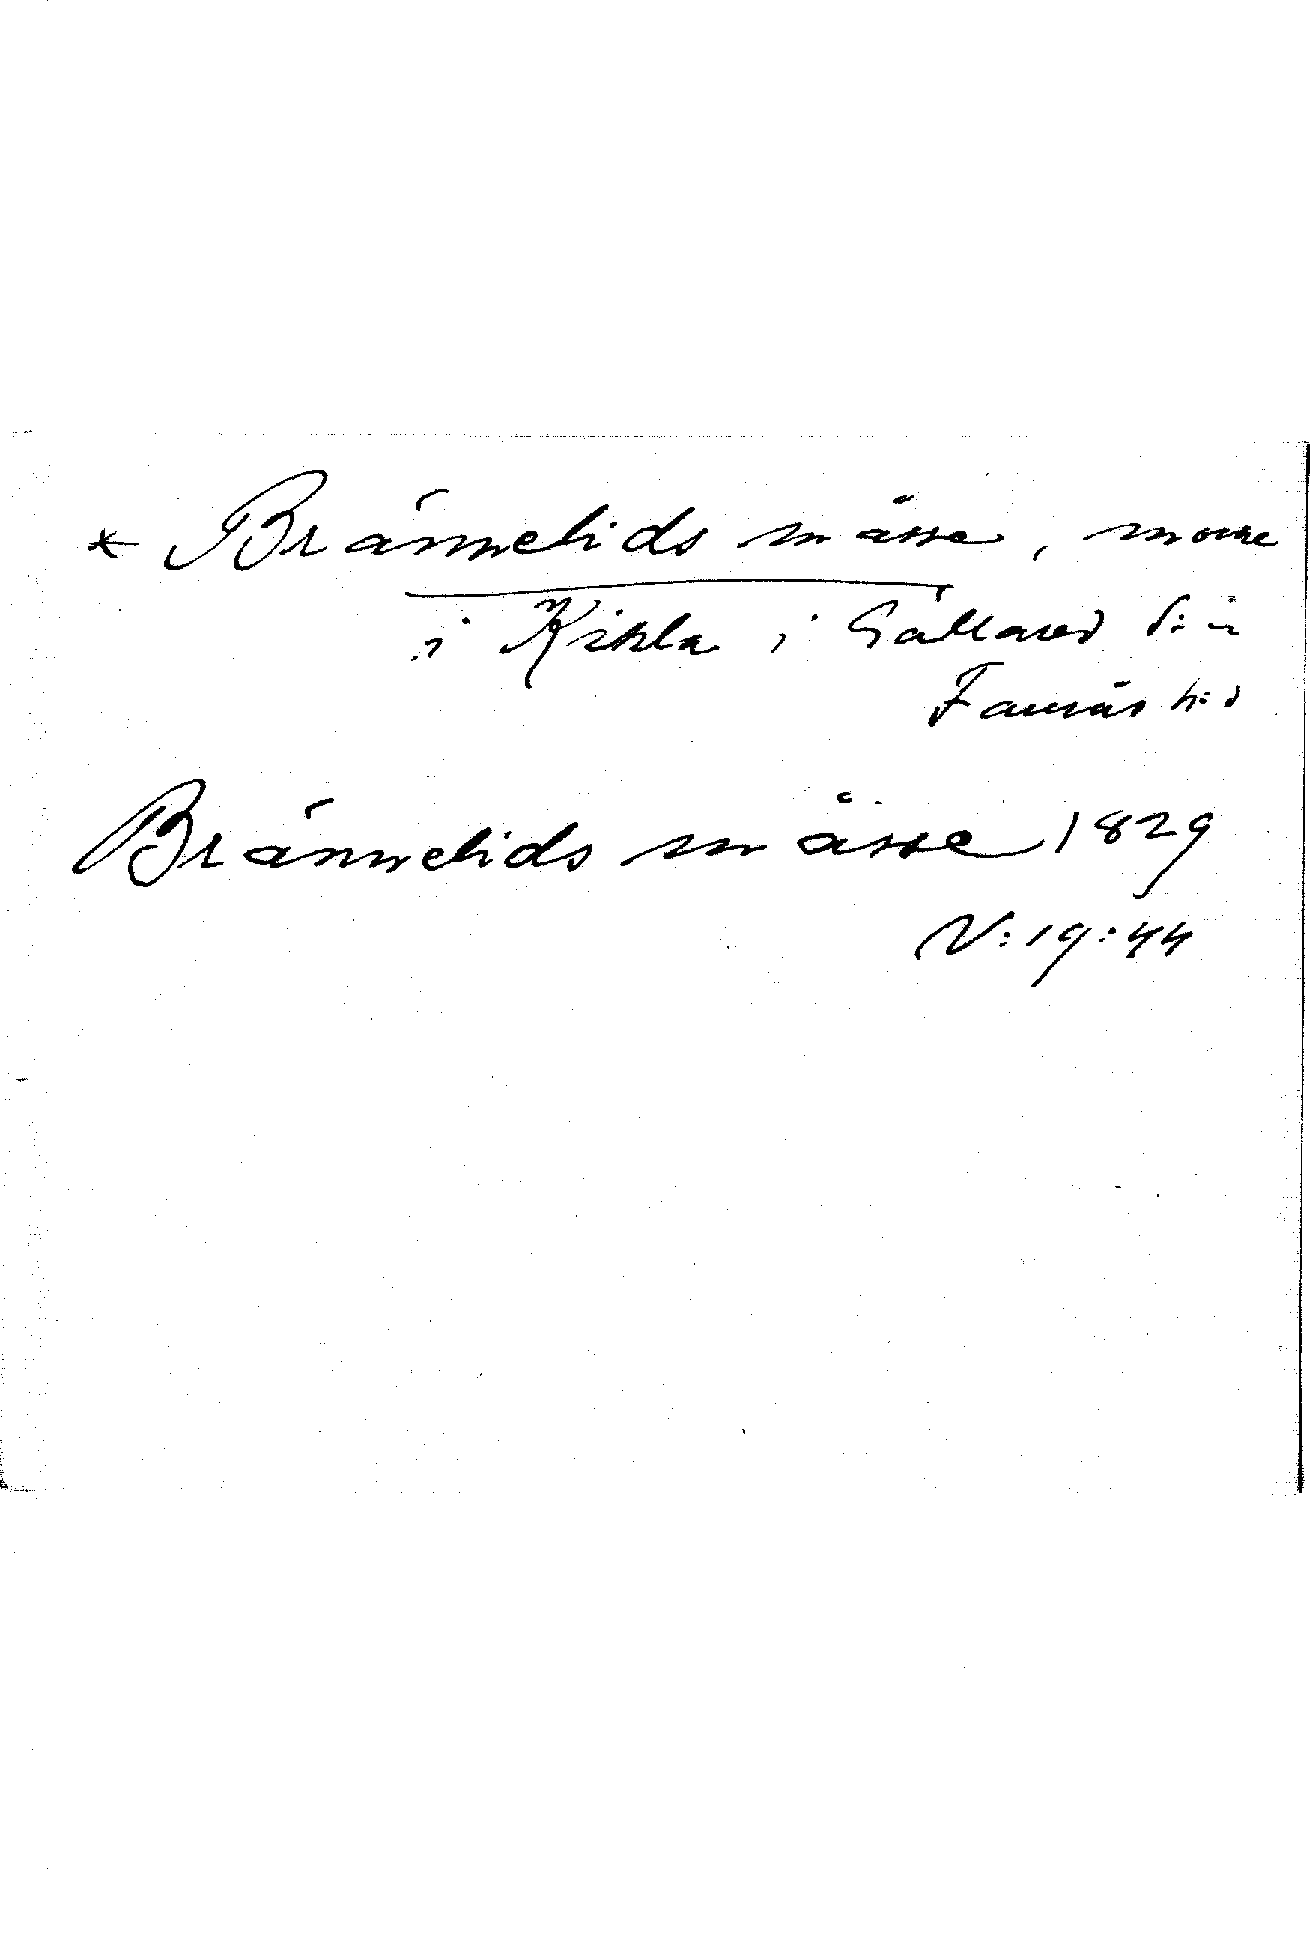 * Brännelids måsse, mosse
i Kikla i Gällared s:n i
Faurås h:d
Brännelids måsse 1829
V:19:44